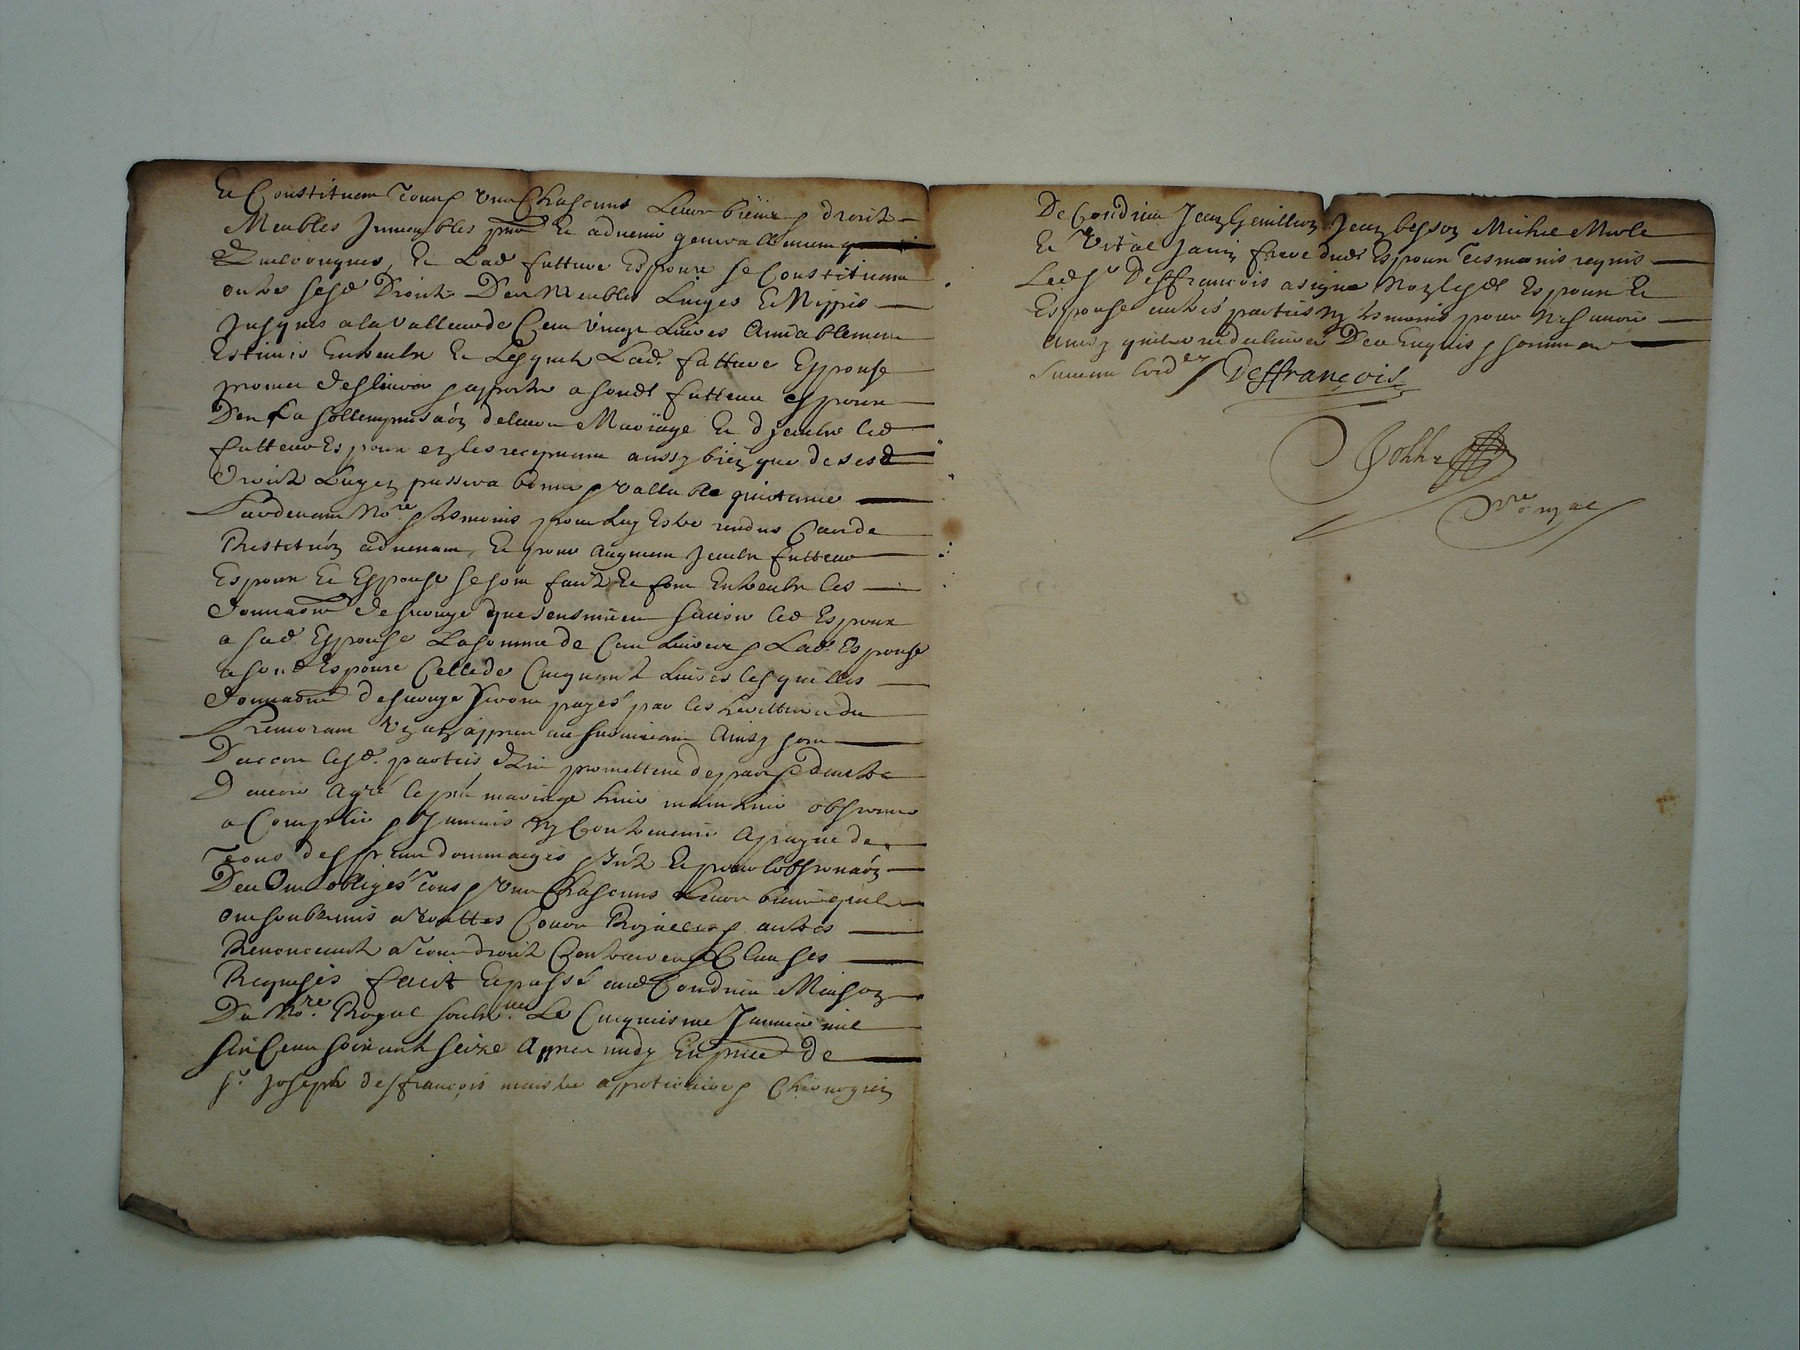 Et Constituent Tous & Un Chascuns Leurs biens & droits
Meubles Jmmeubles pnts Et advenir generallement
quelconques, Et Lad futture Espouse se Constitue
outre sesd Droits Des Meubles Linges Et Nippes
Jusques a la valleur de Cent vingt Livres Amiablement
Estimés Entreulx Et Lesquels Lad. futture Espouse
promet deslivrer & apporter a sondt futteur espoux
Den La sollempnisaon de leur Mariage Et d'jceulx led
futteur Espoux en les recepvant aussy bien que de sesd
droits Luy en passera bonne & vallable quictance
Pardevant Nore & tesmoins pour Luy Estre rendus Cas de
Restituon advenant, Et pour augment jceulx futteur
Espoux Et Espouse se sont faict Et font Entreulx les
donnaons de survye que sensuivent scavoir led Espoux
a sad Espouse La somme de Cent Livres & Lad. Espouse
a sond Espoux Celle de Cinquante Livres lesquelles
donnaons de survye seront payés par les herittiers du
Premorant Ung an appres au survivant Ainsy sont
Daccord lesd. parties qui promettent de part & dautre
D'avoir Agré le pnt mariage tenir maintenir observer
accomplir & Jamais ny Contrevenir a payne de
Tous despens dommages & jntz Et pour lobservaon
Den Ont obligés Tous & Un Chascuns Leurs biens quils
ont soubmis a touttes Cours Royalles & autres
Renonceant a tous droits Contraires & Clauses
Requises faict Et passé aud Condrieu Maison
Du Nore. Royal soubné. Le Cinquiesme Janvier mil
six Cent soixante seize Appres midy En pnce de
sr. Joseph desfrançois maistre appoticaire & Chirurgien
De Condrieu Jean Jean besson Michel Merle
Et Vital Janin frere dudt Espoux Tesmoins requis
Led sr Desfrançois a signé Non lesdt Espoux Et
Espouse autres parties ny tesmoins pour ne scavoir
ainsy quils ont declairé Den Enquis & sommés
suivant lord er Deffrançois
Nore royal